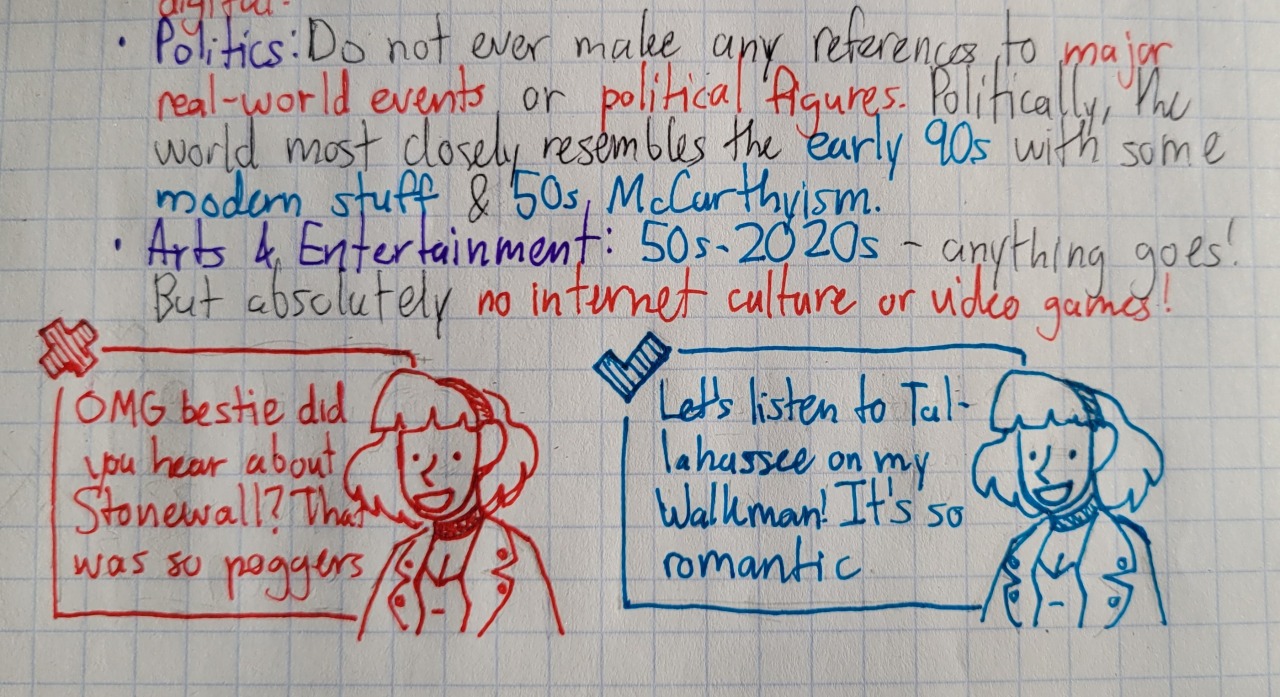 digital.
• Politics: Do not ever make any references to major
real-world events or political figures. Politically, the
world most closely resembles the early 90s with some
modern stuff & 50s McCarthyism.
• Arts & Entertainment: 50s-2020s - anything goes!
But absolutely no internet culture or video games!
OMG bestie did
you hear about
Stonewall? That
was so poggers
Let's listen to Tal-
lahassee on my
Walkman! It's so
romantic